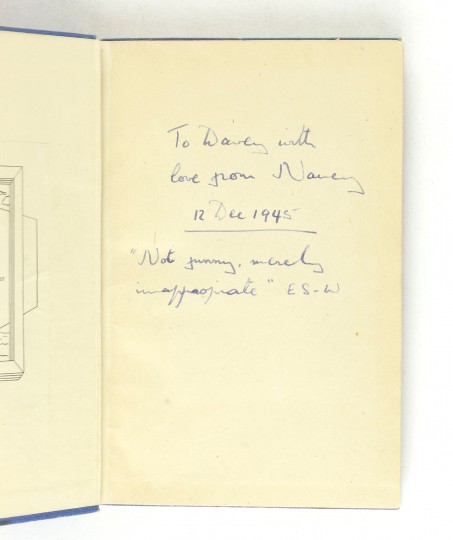 To Davey with
love from Nancy
12 Dec 1945
"Not funny, merely
inappropiate" ES-W